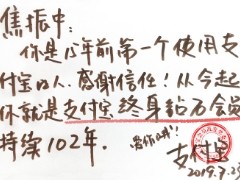 焦振中:
你是15年前第一个使用支
付宝的人.感谢信任!从今起
你就是支付宝终身钻石会员
持续102年.
爱你的哦!!
支付宝
2019.7.25